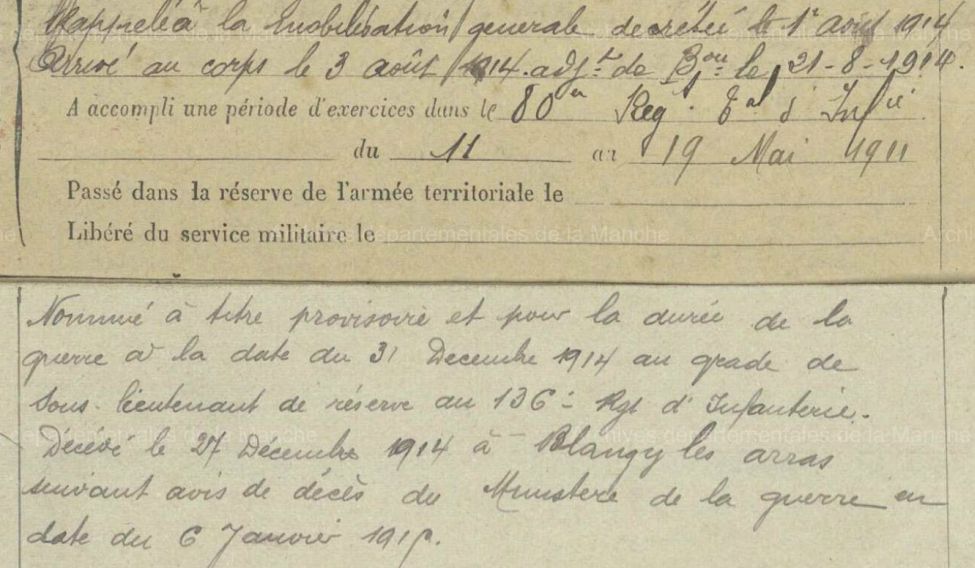 Rappelé à la mobilisation generale decrétée le 1er août 1914
Arrivé au corps le 3 août 1914. adjt de Bon le 21-8-1914.
A accompli une période d'exercices dans le 80e Regt Eal d'Infie
du 11 au 19 Mai 1911
Passé dans la réserve de l'armée territoriale le
Libéré du service militaire le
Nommé à titre provisoire et pour la durée de la
guerre à la date du 31 Decembre 1914 au grade de
sous-lieutenant de réserve au 136e Rgt d'Infanterie.
Décédé le 27 Décembre 1914 à Blangy les arras
suivant avis de décès du Ministere de la guerre en
date du 6 Janvier 1915.